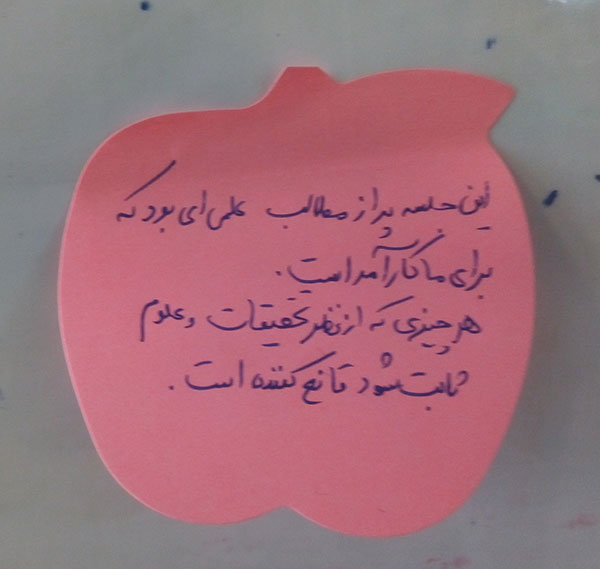 این جلسه پر از مطالب علمی ای بود که
برای ما کارآمد است.
هر چیزی که از نظر تحقیقات و علوم
ثابت شود قانع کننده است.